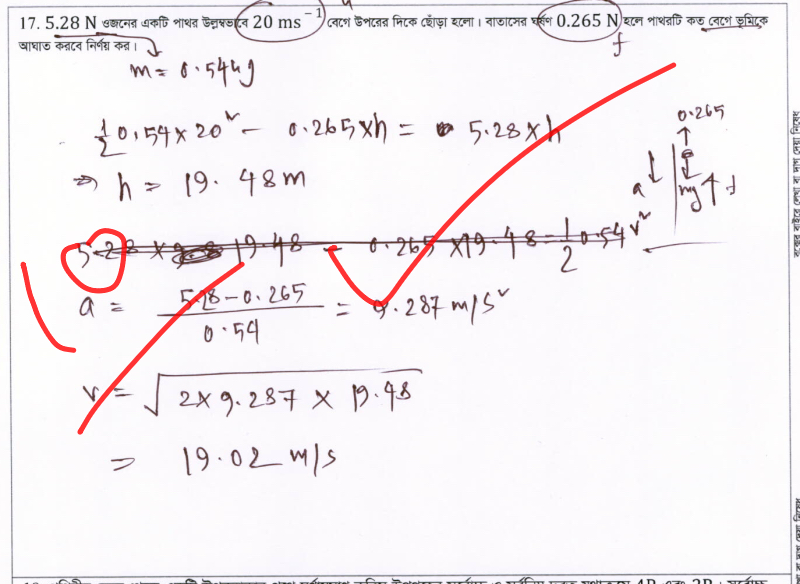 17. 5.28 N ওজনের একটি পাথর উলম্বভাবে 20 ms⁻¹ বেগে উপরের দিকে ছোঁড়া হলো। বাতাসের ঘর্ষণ 0.265 N হলে পাথরটি কত বেগে ভূমিকে
আঘাত করবে নির্ণয় কর।
f
m = 0.544g
½ 0.54 × 20² - 0.265 × h = 5.28 × h
⇒ h = 19.48 m
0.265
a
mg
5.28 × 19.48 - 0.265 × 19.48 = ½ 0.54 v²
a = (5.28 - 0.265) / 0.54 = 9.287 m/s²
v = √(2 × 9.287 × 19.48)
= 19.02 m/s